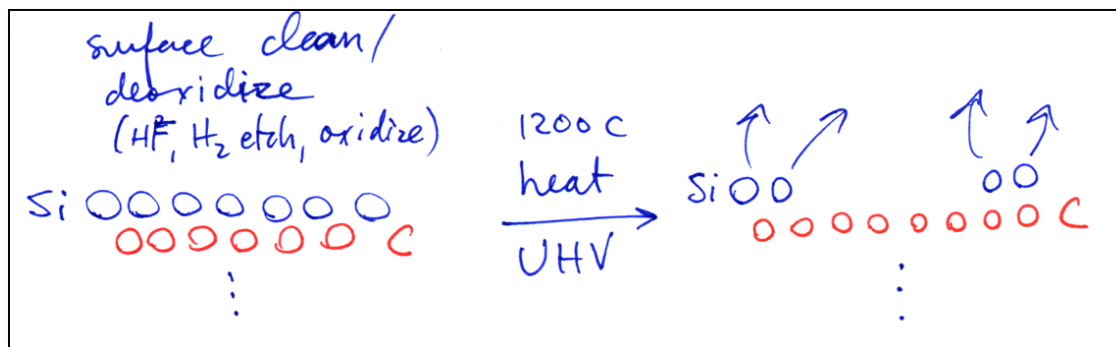 surface clean/
deoxidize
(HF, H₂ etch, oxidize)
Si
C
1200 C
heat
UHV
Si
C